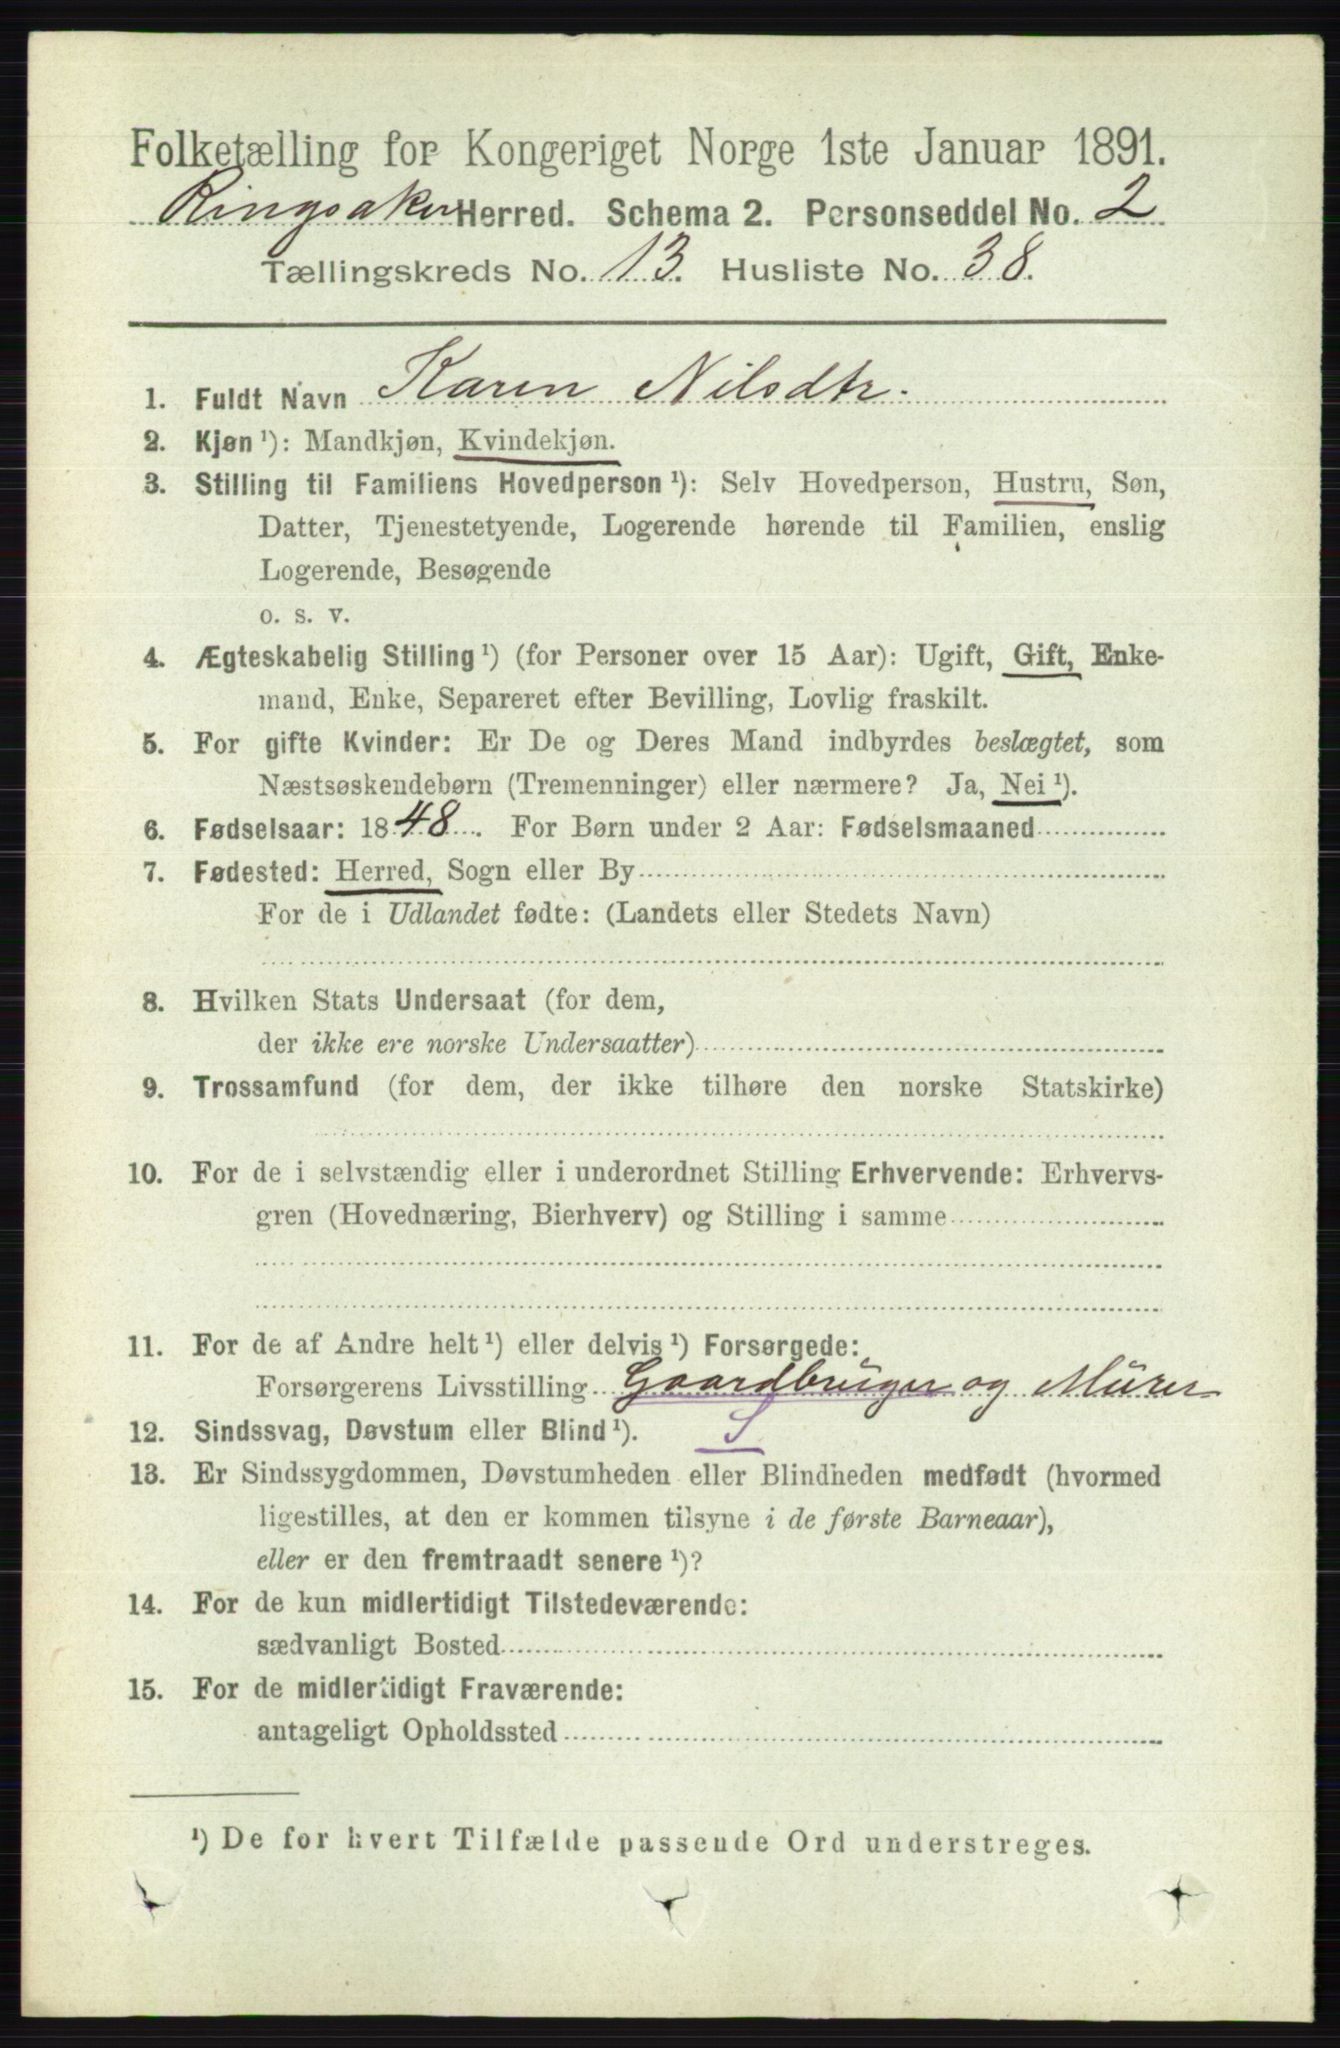 Folketælling for Kongeriget Norge 1ste Januar 1891.
Ringsaker Herred. Schema 2. Personseddel No. 2
Tællingskreds No. 13. Husliste No. 38.
1. Fuldt Navn Karen Nilsdtr.
2. Kjøn ¹): Mandkjøn, Kvindekjøn.
3. Stilling til Familiens Hovedperson ¹): Selv Hovedperson, Hustru, Søn,
Datter, Tjenestetyende, Logerende hørende til Familien, enslig
Logerende, Besøgende
o. s. v.
4. Ægteskabelig Stilling ¹) (for Personer over 15 Aar): Ugift, Gift, Enke-
mand, Enke, Separeret efter Bevilling, Lovlig fraskilt.
5. For gifte Kvinder: Er De og Deres Mand indbyrdes beslægtet, som
Næstsøskendebørn (Tremenninger) eller nærmere? Ja, Nei ¹).
6. Fødselsaar: 1848. For Børn under 2 Aar: Fødselsmaaned
7. Fødested: Herred, Sogn eller By
For de i Udlandet fødte: (Landets eller Stedets Navn)
8. Hvilken Stats Undersaat (for dem,
der ikke ere norske Undersaatter)
9. Trossamfund (for dem, der ikke tilhøre den norske Statskirke)
10. For de i selvstændig eller i underordnet Stilling Erhvervende: Erhvervs-
gren (Hovednæring, Bierhverv) og Stilling i samme
11. For de af Andre helt ¹) eller delvis ¹) Forsørgede:
Forsørgerens Livsstilling Gaardbruger og Murer
12. Sindssvag, Døvstum eller Blind ¹). S
13. Er Sindssygdommen, Døvstumheden eller Blindheden medfødt (hvormed
ligestilles, at den er kommen tilsyne i de første Barneaar),
eller er den fremtraadt senere ¹)?
14. For de kun midlertidigt Tilstedeværende:
sædvanligt Bosted
15. For de midlertidigt Fraværende:
antageligt Opholdssted
¹) De for hvert Tilfælde passende Ord understreges.